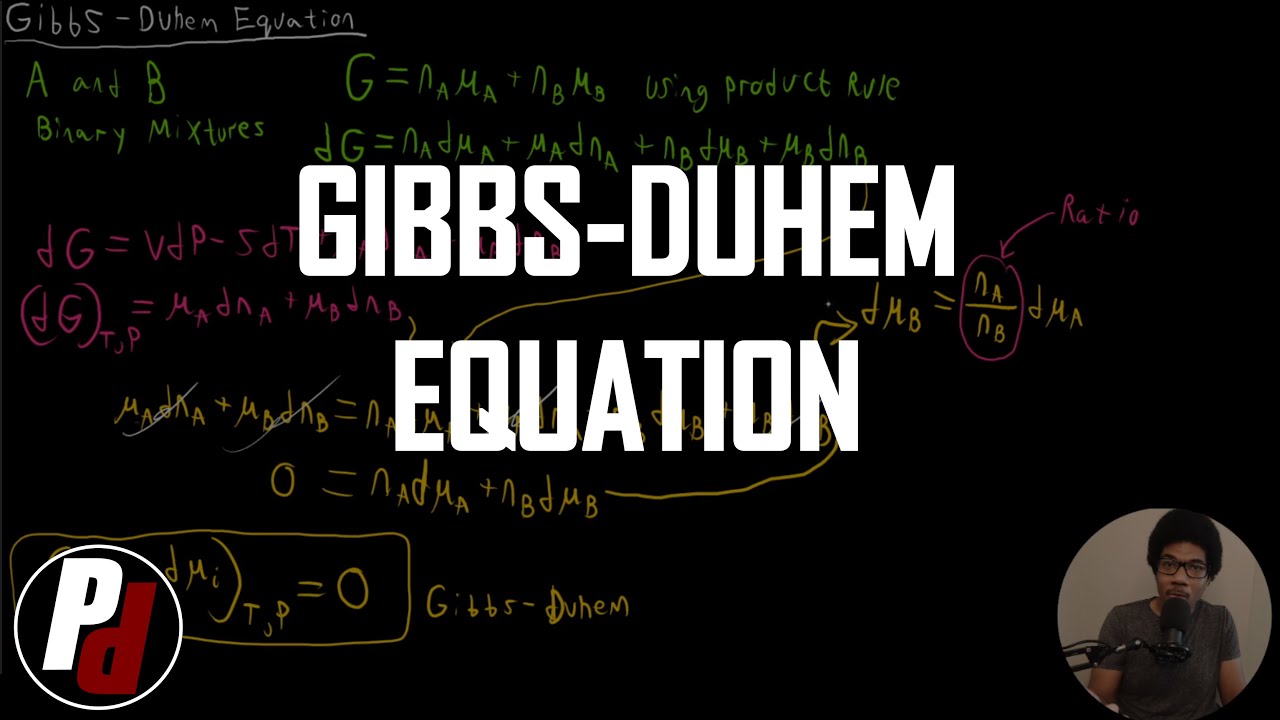 Gibbs-Duhem Equation
A and B
Binary Mixtures
G = n_A μ_A + n_B μ_B using product Rule
dG = n_A dμ_A + μ_A dn_A + n_B dμ_B + μ_B dn_B
GIBBS-DUHEM
EQUATION
dG = VdP - SdT
(dG)_T,P = μ_A dn_A + μ_B dn_B
Ratio
dμ_B = n_A/n_B dμ_A
μ_A dn_A + μ_B dn_B = n_A
0 = n_A dμ_A + n_B dμ_B
dμ_i)_T,P = 0 Gibbs-Duhem
Pd